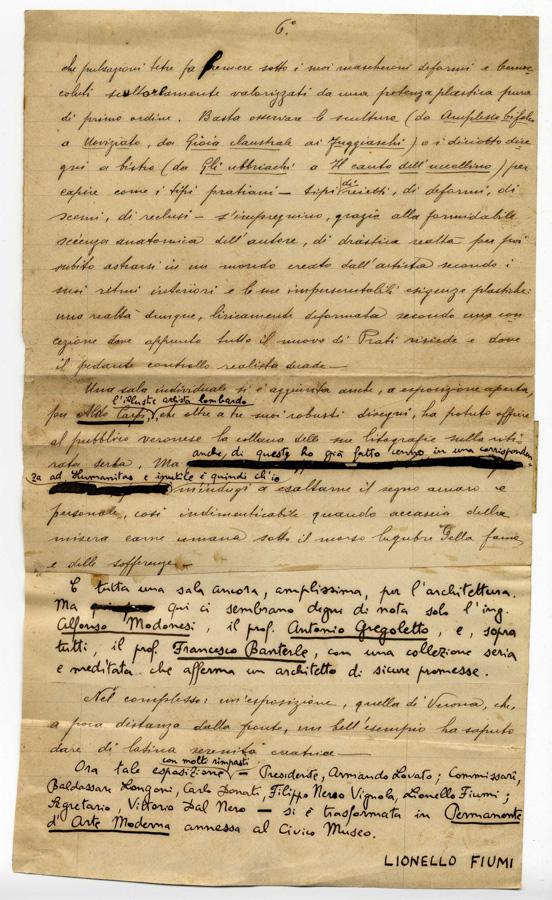 6.°
che pulsazioni tetre fa fremere sotto i suoi mascheroni deformi e
coluti scultoriamente valorizzati da una potenza plastica pura
di primo ordine. Basta osservare le sculture (da Amplesso bifolco
a Noviziato, da Gioia claustrale ai Fuggiaschi) o i diciotto dise
gni a bistro (da Gli ubbriachi a Il canto dell'uccellino) per
capire come i tipi pratiani — tipi di reietti, di deformi, di
scemi, di reclusi — s'impregnino, grazie alla formidabile
scienza anatomica dell'autore, di drastica realtà per poi
subito astrarsi in un mondo creato dall'artista secondo i
suoi ritmi interiori e le sue imperscrutabili esigenze plastiche:
una realtà dunque, liricamente deformata secondo una con
cezione dove appunto tutto il nuovo di Prati risiede e dove
il pedante controllo realista evade.—
Una sala individuale si è aggiunta anche, a esposizione aperta,
l'illustre artista lombardo
per Aldo Carpi, che oltre a tre suoi robusti disegni, ha potuto offrire
al pubblico veronese la collana delle sue litografie sulla riti
rata serba. Ma anche, di queste ho già fatto cenno in una corrisponden-
za ad Humanitas e inutile è quindi ch'io
m'indugi a esaltarne il segno amaro e
personale, così indimenticabile quando accascia della
misera carne umana sotto il morso lugubre della fame
e delle sofferenze.—
E tutta una sala ancora, amplissima, per l'architettura.
Ma qui ci sembrano degni di nota solo l'ing.
Alfonso Modonesi, il prof. Antonio Gregoletto, e, sopra
tutti, il prof. Francesco Banterle, con una collezione seria
e meditata che afferma un architetto di sicure promesse.
Nel complesso: un'esposizione, quella di Verona, che,
a poca distanza dalla fronte, un bell'esempio ha saputo
dare di latina serenità creatrice—
con molti rimpasti
Ora tale esposizione — Presidente, Armando Lovato; Commissari,
Baldassare Longoni, Carlo Donati, Filippo Nereo Vignola, Lionello Fiumi;
Segretario, Vittorio Dal Nero — si è trasformata in Permanente
d'Arte Moderna annessa al Civico Museo.
LIONELLO FIUMI